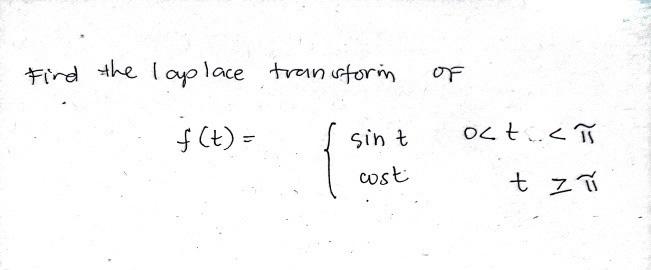 Find the laplace transform of
f(t) = { sin t 0< t < π
cost t ≥ π